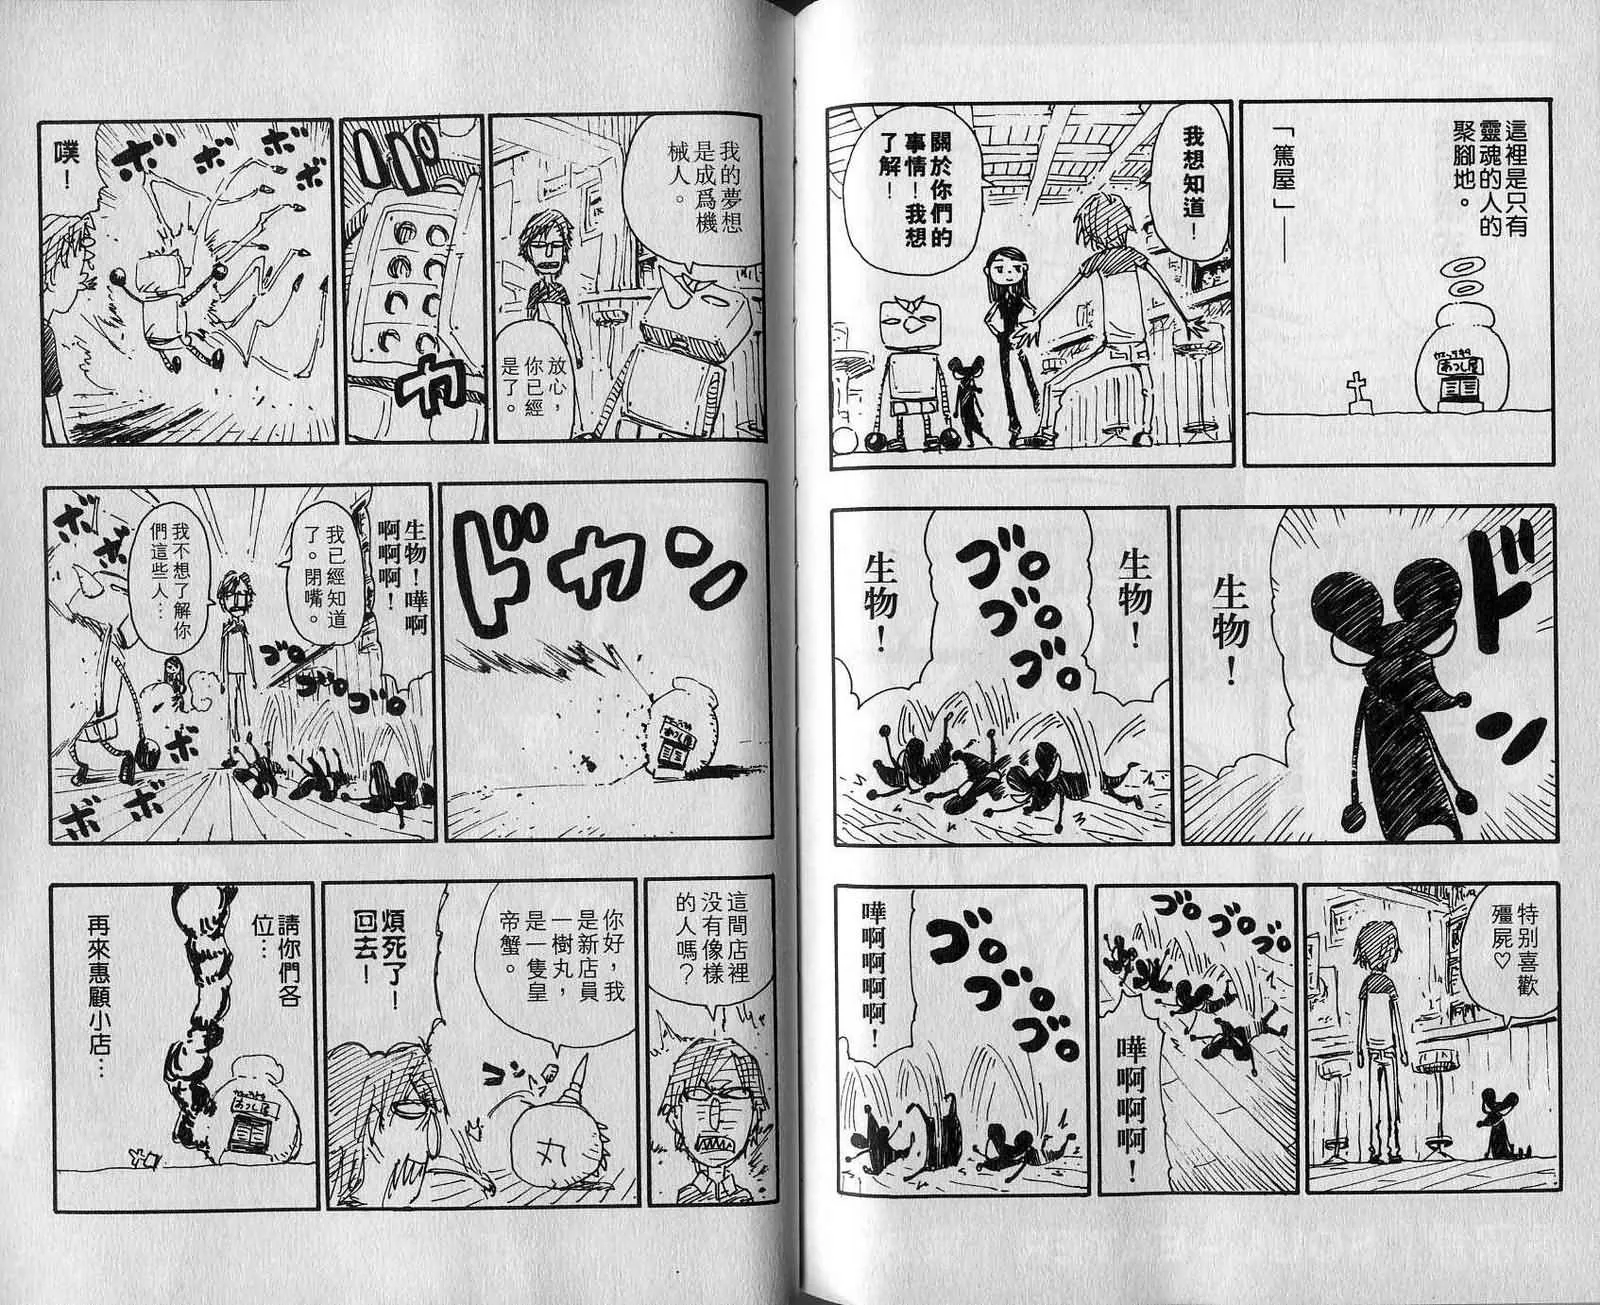 這裡是只有
靈魂的人的
聚腳地。
「篤屋」——
あつし屋
我想知道！
關於你們的
事情！我想
了解！
ドン
生物！
生物！
生物！
ゴロ
ゴロ
ゴロ
特別喜歡
殭屍♡
ゴロゴロゴロ
嘩啊啊啊啊！
ゴロ
ゴロ
ゴロ
嘩啊啊啊啊啊！
我的夢想
是成爲機
械人。
放心，
你已經
是了。
パパ
カ
ボ
ボ
ボ
噗！
ドカン
あつし屋
生物！嘩啊
啊啊啊！
我已經知道
了。閉嘴。
我不想了解你
們這些人…
ゴロ
ゴロ
ゴロ
ボボボ
ボボ
ボボ
這間店裡
没有像樣
的人嗎？
你好，我
是新店員
一樹丸，
是一隻皇
帝蟹。
コン
丸
煩死了！
回去！
請你們各
位…
再來惠顧小店…
あつし屋